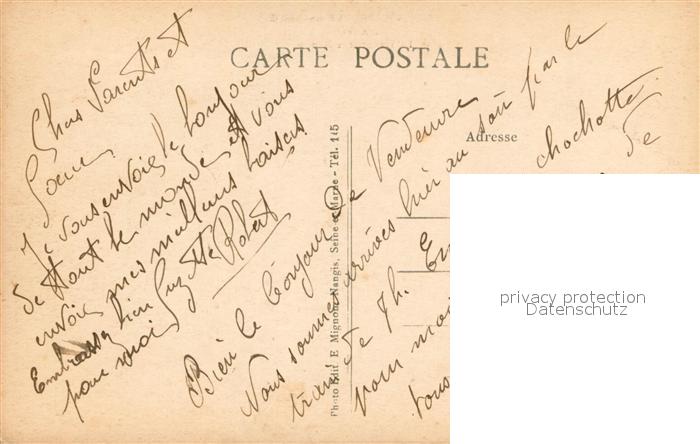 CARTE POSTALE
Adresse
Chers Parents et
Soeur
Je vous envoie le bonjour
de tout le monde et vous
envoie mes meilleurs baisers
Embrassez bien Suzette
pour moi Robert
Photo Edit. E Mignon, Nangis, Seine et Marne - Tél. 145
Bien le bonjour de Vendeuvre
Nous sommes arrivés hier au soir par le
train de 7h. chochotte
pour moi de
tous
privacy protection
Datenschutz